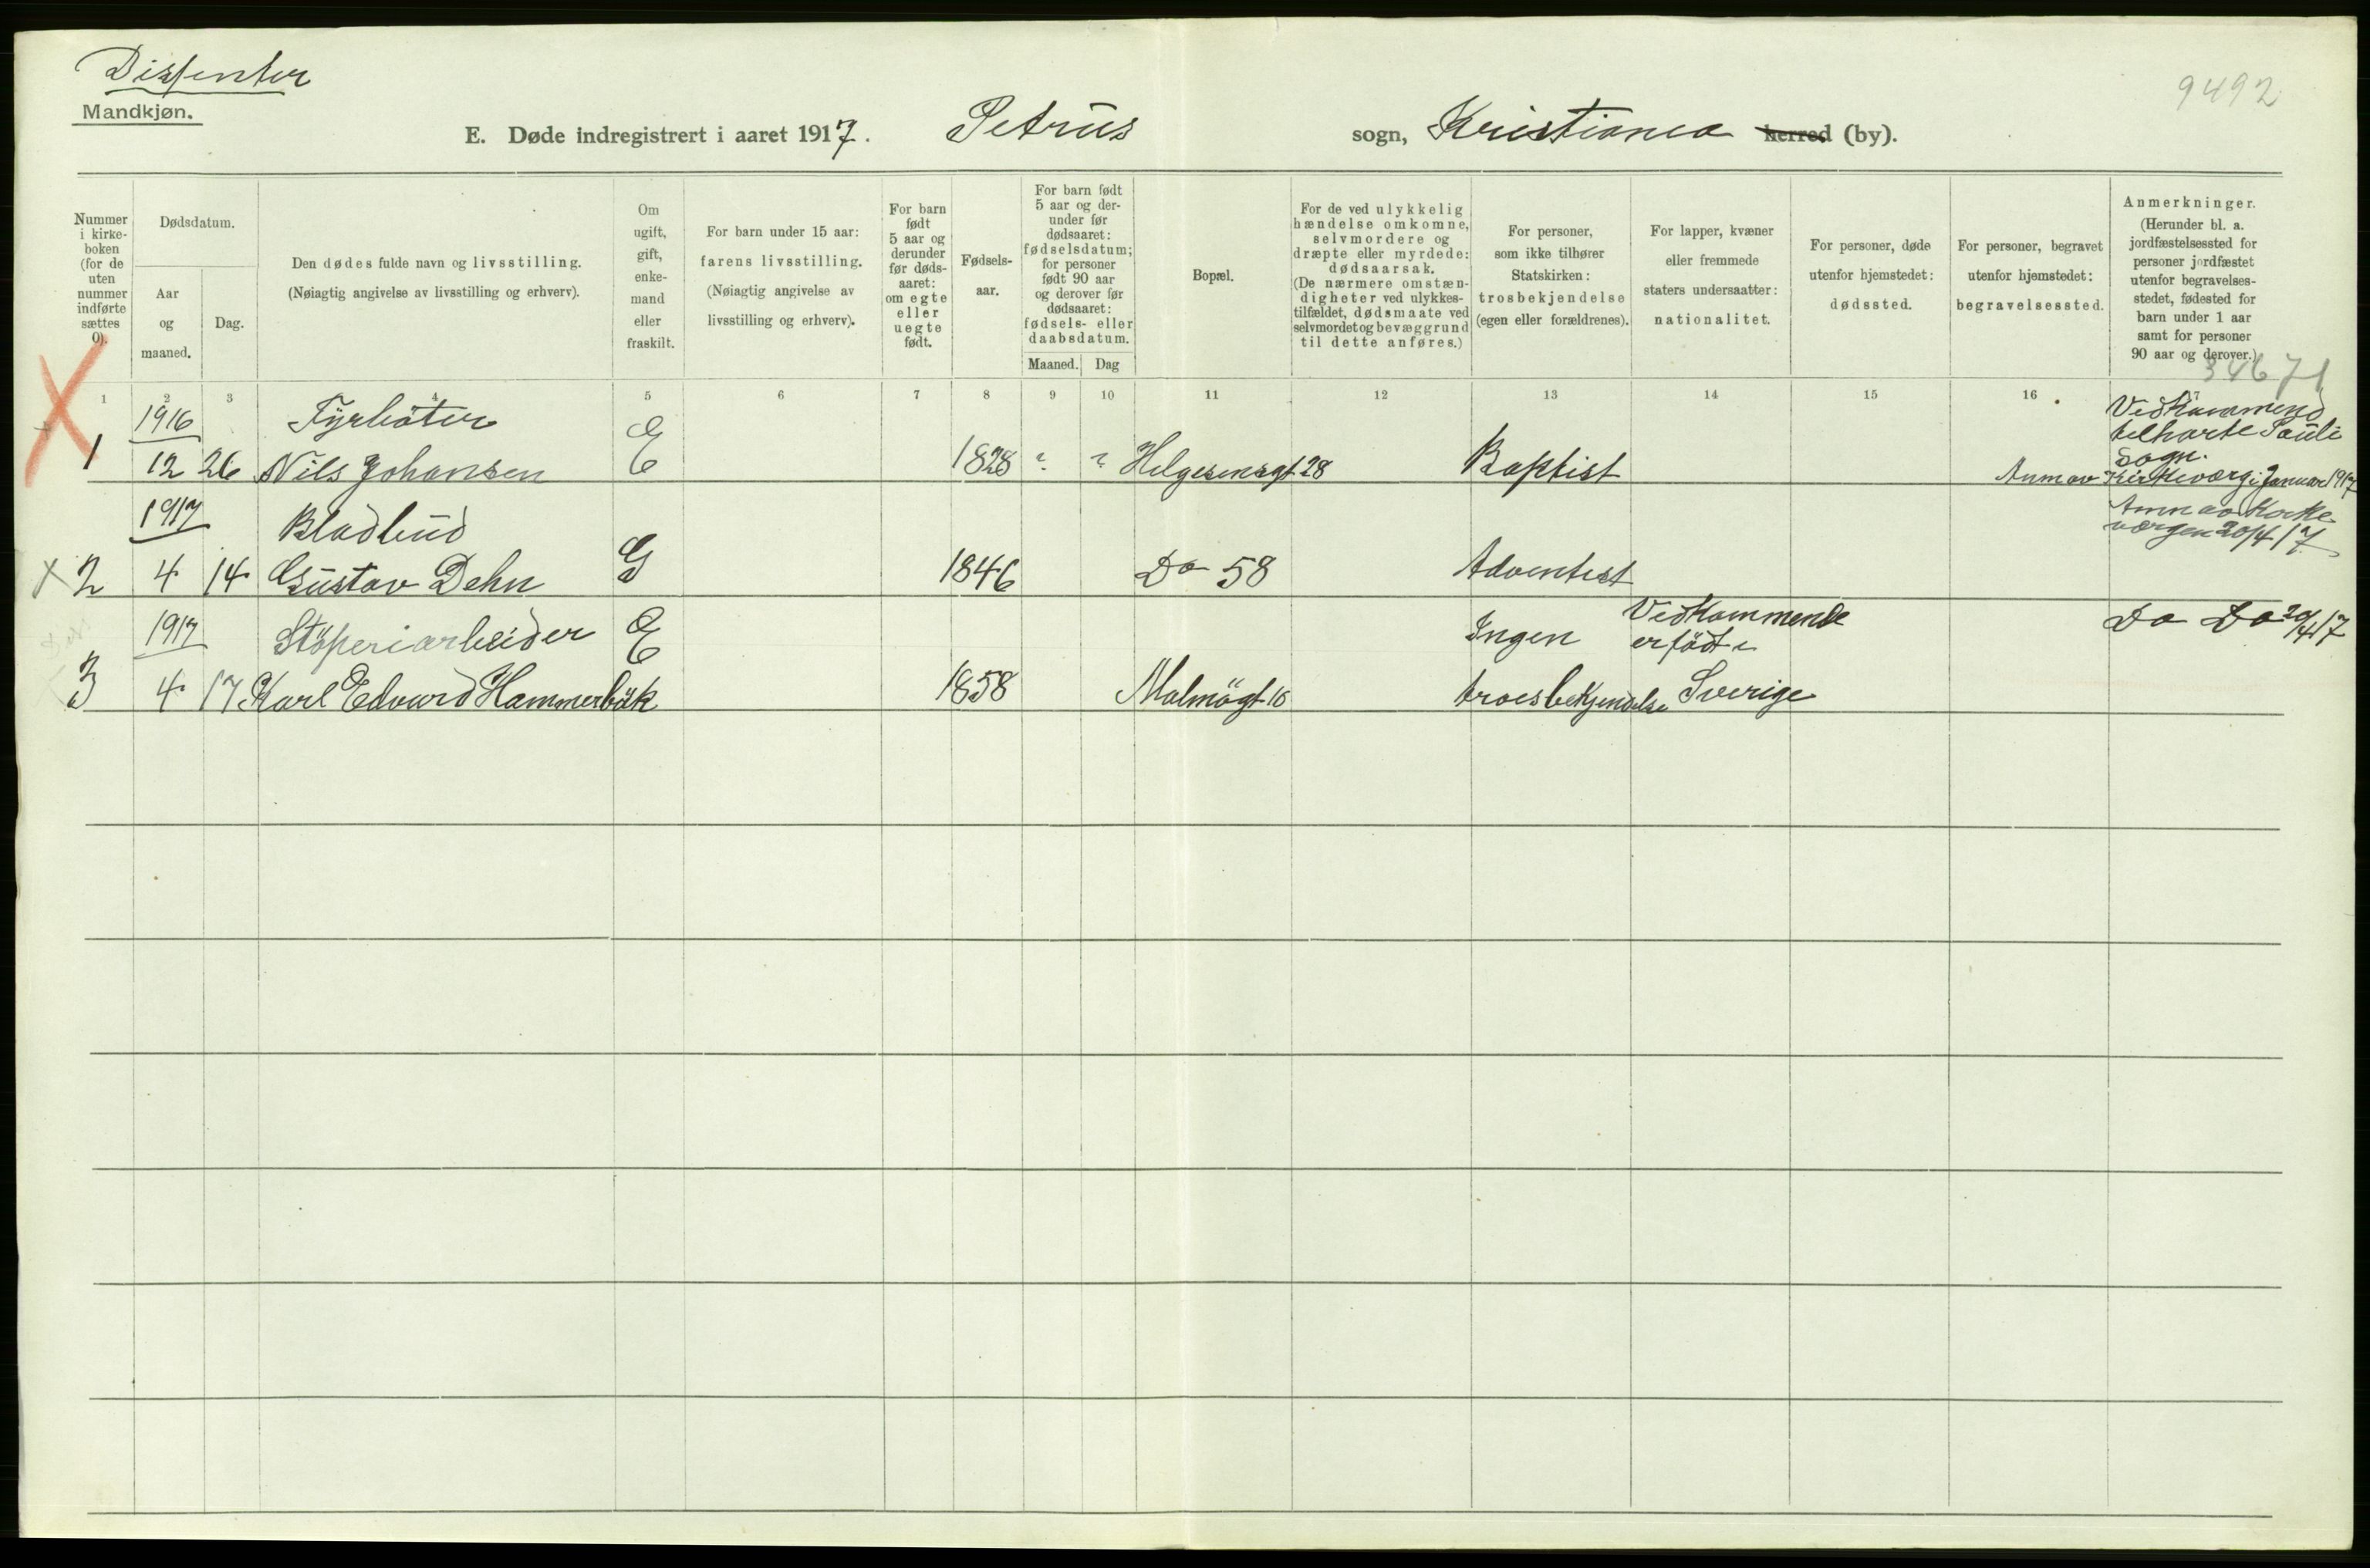 Dissenter
Mandkjøn.
9492
E. Døde indregistrert i aaret 1917. Petrus sogn, Kristiania herred (by).
Nummer i kirke-boken (for de uten nummer indførte sættes 0).
Dødsdatum.
Aar og maaned.
Dag.
Den dødes fulde navn og livsstilling.
(Nøiagtig angivelse av livsstilling og erhverv).
Om ugift, gift, enke-mand eller fraskilt.
For barn under 15 aar: farens livsstilling.
(Nøiagtig angivelse av livsstilling og erhverv).
For barn født 5 aar og derunder før døds-aaret: om egte eller uegte født.
Fødsels-aar.
For barn født 5 aar og der-under før dødsaaret: fødselsdatum; for personer født 90 aar og derover før dødsaaret: fødsels- eller daabsdatum.
Maaned. Dag
Bopæl.
For de ved ulykkelig hændelse omkomne, selvmordere og dræpte eller myrdede: dødsaarsak.
(De nærmere omstæn-digheter ved ulykkes-tilfældet, dødsmaate ved selvmordet og bevæggrund til dette anføres.)
For personer, som ikke tilhører Statskirken: trosbekjendelse (egen eller forældrenes).
For lapper, kvæner eller fremmede staters undersaatter: nationalitet.
For personer, døde utenfor hjemstedet: dødssted.
For personer, begravet utenfor hjemstedet: begravelsessted.
Anmerkninger.
(Herunder bl. a. jordfæstelsessted for personer jordfæstet utenfor begravelses-stedet, fødested for barn under 1 aar samt for personer 90 aar og derover.)
34671
1 2 3 4 5 6 7 8 9 10 11 12 13 14 15 16
1916 Fyrböter E Vedkommend
tilhørte Pauli
Sogn.
1 12 26 Nils Johansen E 1828 ? ? Helgesensgt 28 Baptist Anm av Kirkeværg i Januar 1917
1917 Bladbud Anm av Kirke
værgen 20/4 17
2 4 14 Gustav Dehn G 1846 Do 58 Adventist
1917 Stöperiarbeider E Ingen Vedkommende Do Do 20/4 17
er födt i
3 4 17 Karl Edvard Hammerbäk 1858 Malmögt 16 troesbekjendelse Sverige